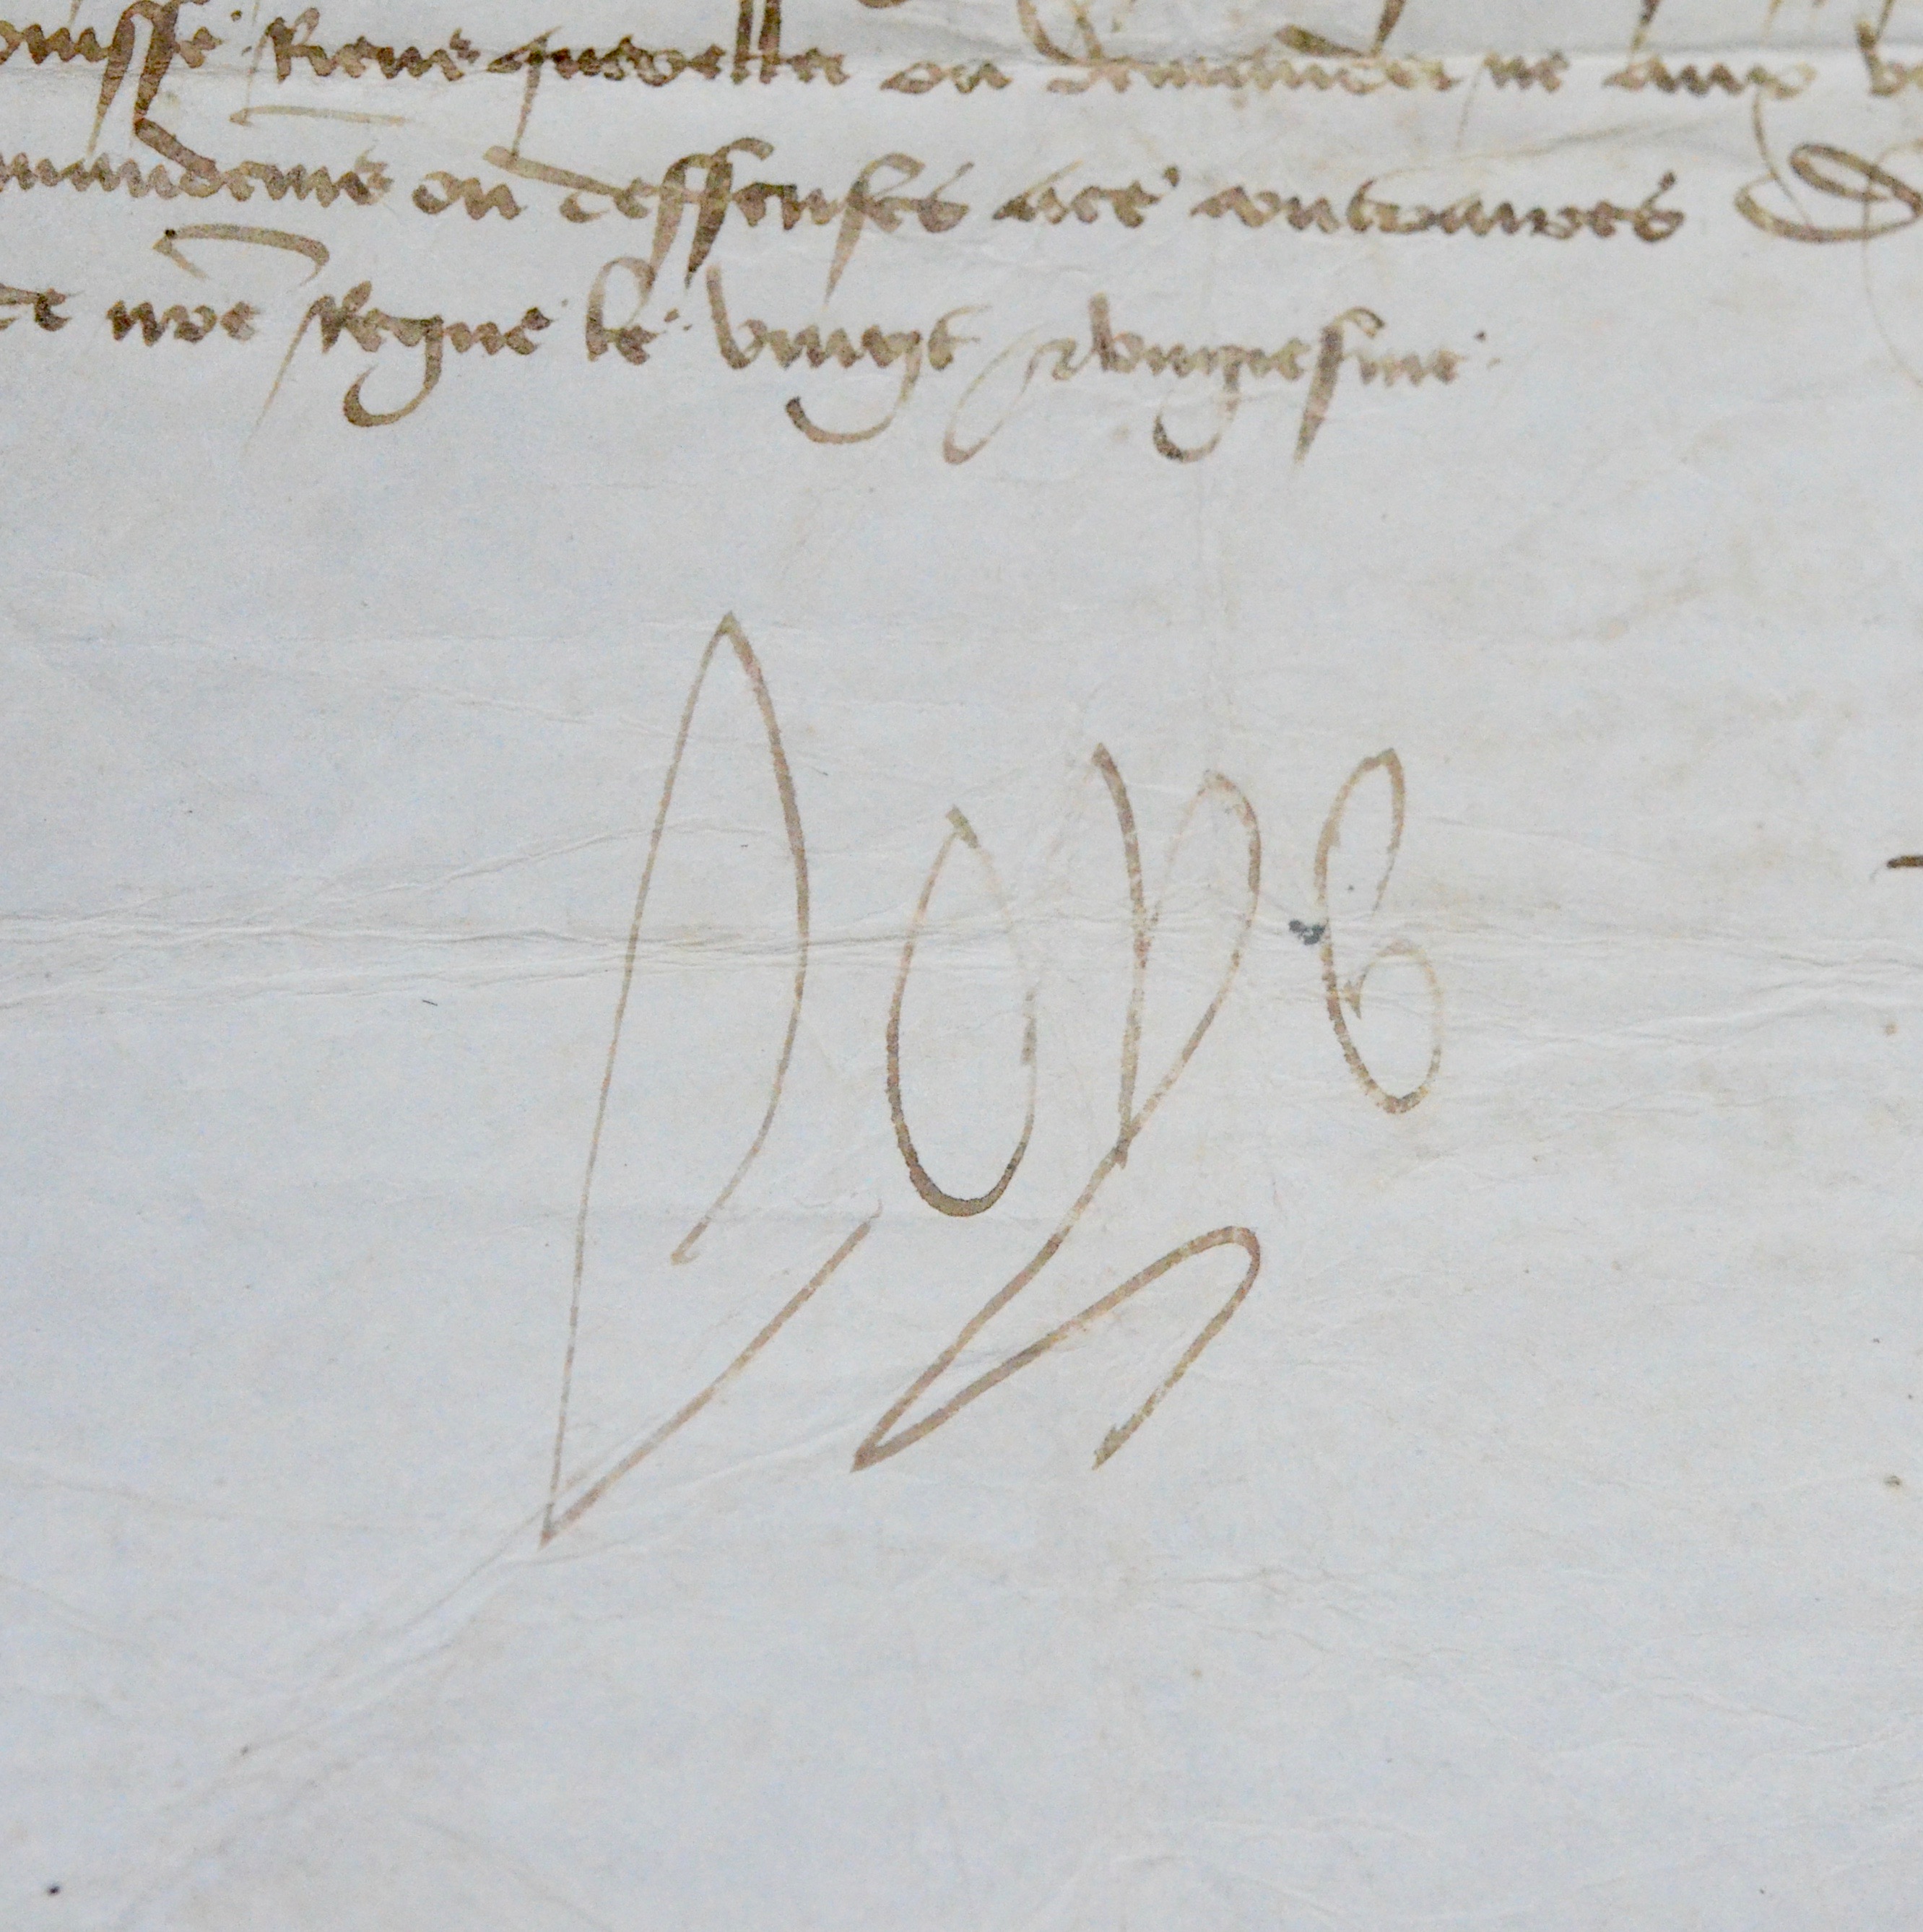 puisse Riens quereller ou demander ne aux
mandemens ou deffenses a ce contraires
de nre Regne le vingt & ungiesme
Loys